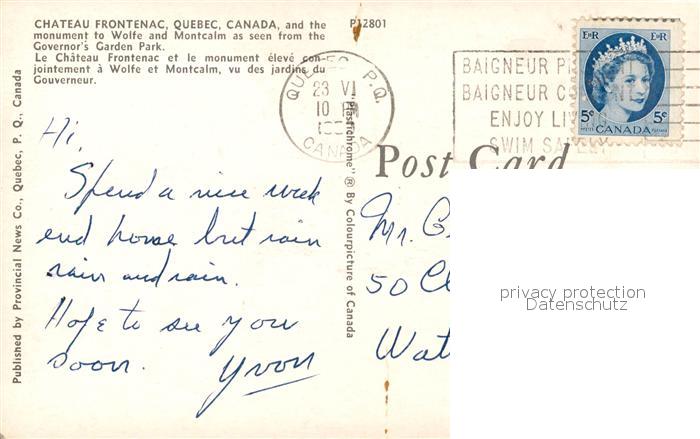 CHATEAU FRONTENAC, QUEBEC, CANADA, and the
monument to Wolfe and Montcalm as seen from the
Governor's Garden Park.
Le Château Frontenac et le monument élevé con-
jointement à Wolfe et Montcalm, vu des jardins du
Gouverneur.
P12801
Published by Provincial News Co., Quebec, P. Q., Canada
"Plastichrome" ® By Colourpicture of Canada
QUEBEC P.Q.
23 VI
10
CANADA
BAIGNEUR
BAIGNEUR
ENJOY
SWIM
E II R
E II R
5c
5c
CANADA
POSTES POSTAGE
Post Card
Hi,
Spend a nice week
end home but rain
rain and rain.
Hope to see you
soon. Yvon
Mr. G
50
Wat
privacy protection
Datenschutz